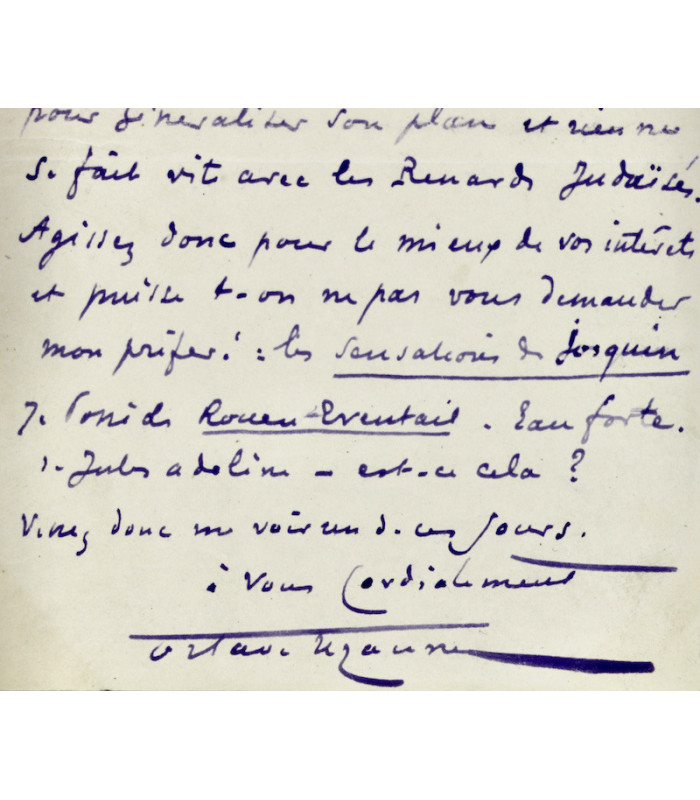 pour généraliser son plan et rien ne
se fait vite avec les Renards Judaïsés.
Agissez donc pour le mieux de vos intérêts
et puisse t-on ne pas vous demander
mon préféré : les Sensations de Josquin
Je possède Rouen-Eventail. Eau forte.
de Jules adeline – est-ce cela ?
Venez donc me voir un de ces Jours.
à Vous Cordialement
Octave Uzanne